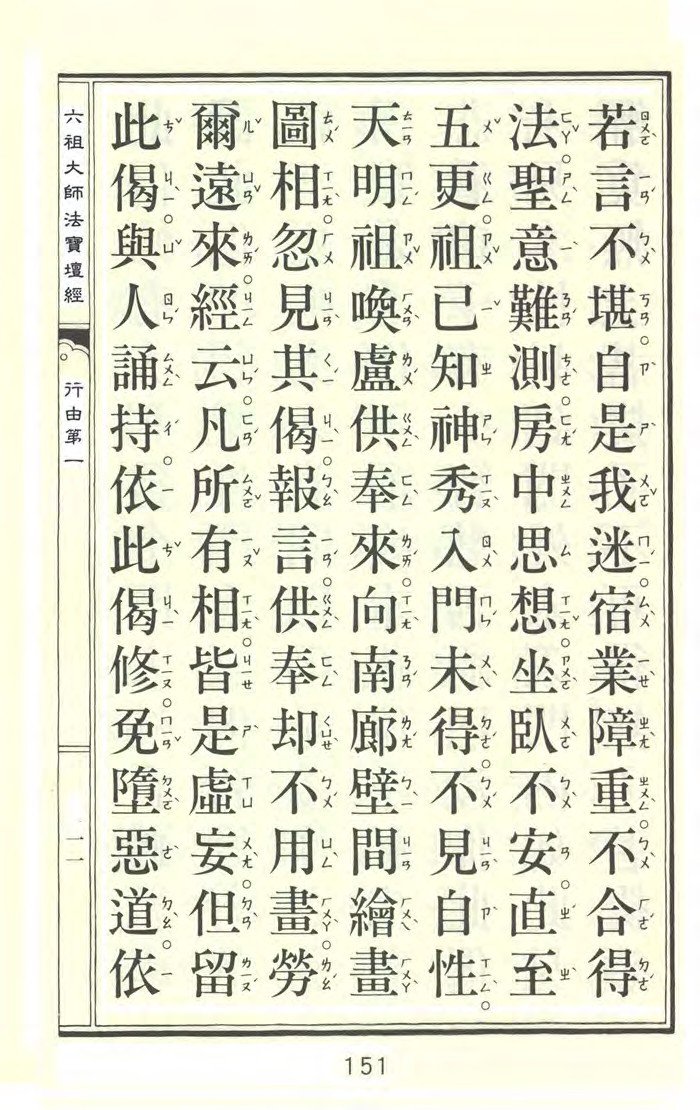 若言不堪。自是我迷。宿業障重。不合得
法。聖意難測。房中思想。坐臥不安。直至
五更。祖已知神秀入門未得。不見自性。
天明祖喚盧供奉來。向南廊壁間繪畫
圖相。忽見其偈。報言。供奉却不用畫。勞
爾遠來。經云。凡所有相。皆是虛妄。但留
此偈。與人誦持。依此偈修。免墮惡道。依
六祖大師法寶壇經
行由第一
一一
151